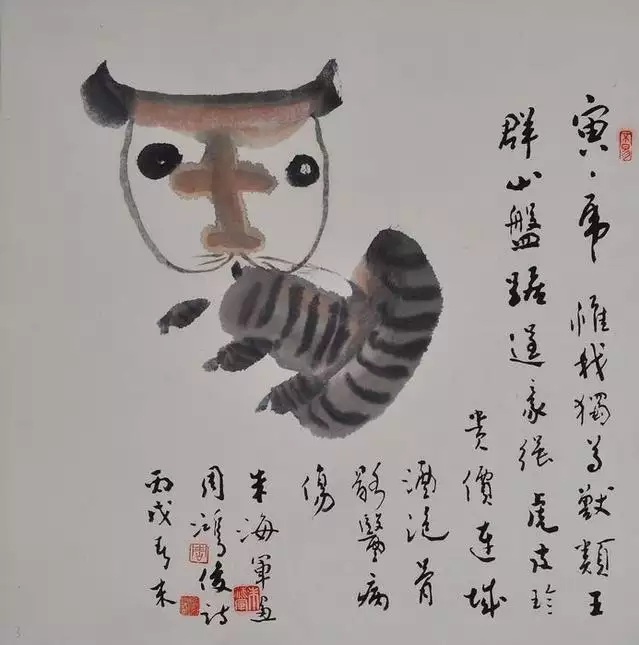 寅、虎 惟我獨尊獸類王
群山盤踞逞豪强 虎皮珍
貴價連城
酒泡骨
骸醫病
傷
朱海军畫
周鸿俊诗
丙戌春末
3